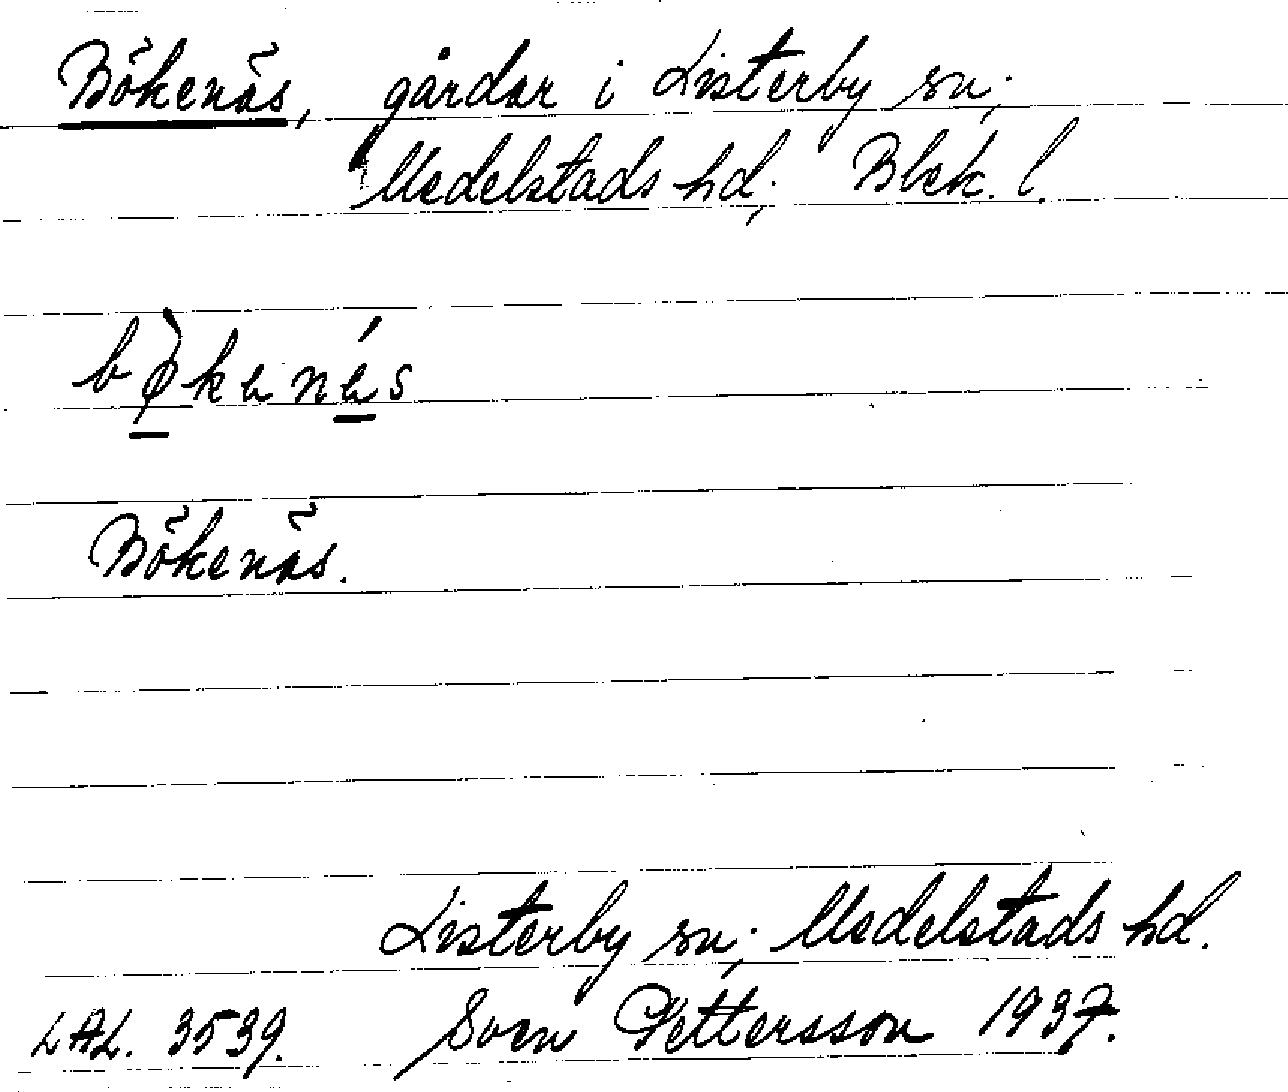 Bökenäs, gårdar i Listerby sn;
Medelstads hd; Blek. l.
bø̀kenés
Bökenäs.
Listerby sn; Medelstads hd.
LAL. 3539. Sven Pettersson 1937.